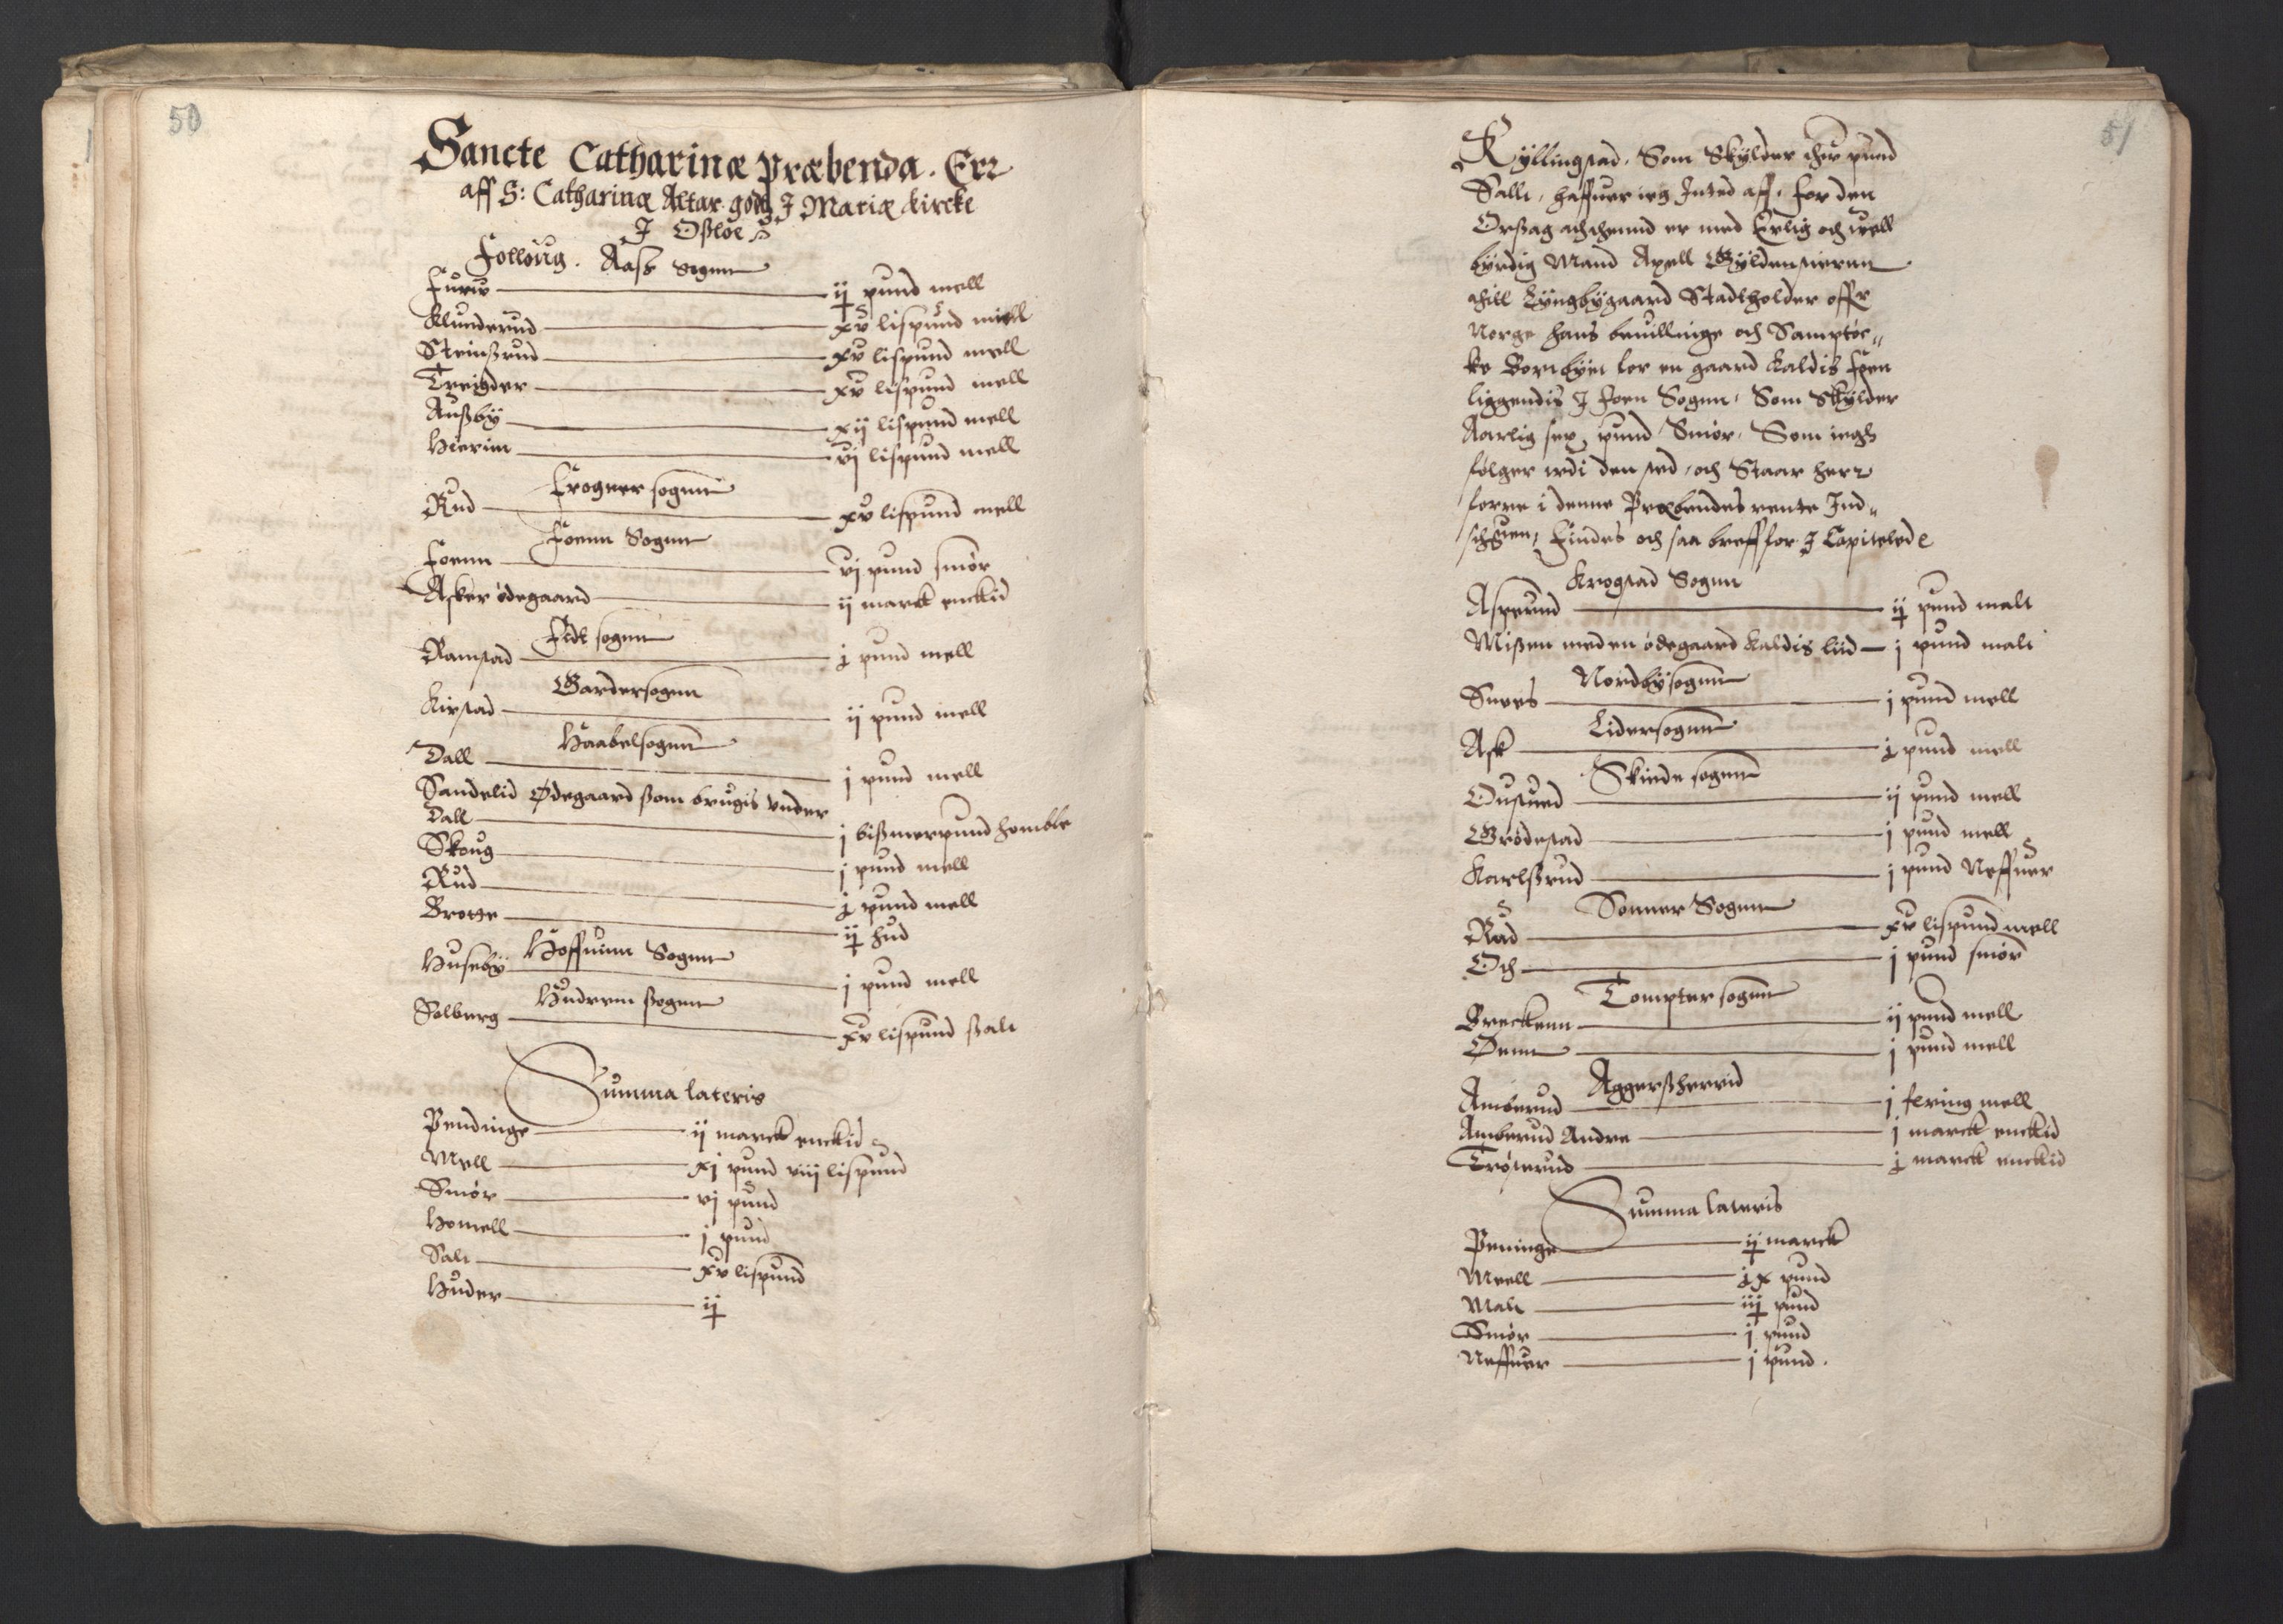 50
Sancte Catharinæ Præbenda. Err
aff S: Catharinæ Altar godtz J Mariæ kircke
J Oßloe
Folloug. Aaß sognn
Furw ij pund mell
Klunderud xv lispund miell
Steinßrud xv lispund mell
Treigder xv lispund mell
Außby xij lispund mell
Hierim vj lispund mell
Frogner sognn
Rud xv lispund mell
Foenn Sognn
Foenn vj pund smør
Asker ødegaard ij marck enckid
Fedt sognn
Ramstad j pund mell
Garder sognn
Kirstad ij pund mell
Haabel sognn
Dall j pund mell
Sandelid Ødegaard ßom brugis vnder
Dall j bißmerpund homble
Skoug j pund mell
Rud j pund mell
Brotge ij hud
Hoffuinn Sognn
Huseby j pund mell
Hudrem ßognn
Solberg xv lispund ßalt
Summa lateris
Pendinge ij marck enckid
Mell xj pund viij lispund
Smør vj pund
Homell j pund
Salt xv lispund
Huder ij
51
Kyllingstad. Som Skylder pund
Sallt, haffuer ieg Inted aff, for den
Orßag er med Erlig och well
byrdig Mand Axell Gyldenstierne
till Lyngbygaard Stadtholder offr
Norge hans beuillinge och Samptøc-
ke for en gaard kaldis Foen
liggendis J Foen Sognn, Som Skylder
Aarlig sex pund Smør, Som iegh
følger den sted, och Staar herr
forre i denne Præbendes rente Ind-
schreuen, Findes och saa breff for J Capitelede
Krogstad Sognn
Asperud ij pund malt
Mißen med en ødegaard kaldis liid j pund malt
Nordby sognn
Snees j pund mell
Lider sognn
Ask j pund mell
Skiede sognn
Oustued ij pund mell
Grødestad j pund mell
Karlßrud j pund Neffuer
Sonner Sognn
Rød xv lispund mell
Och j pund smør
Tompter sognn
Breckenn ij pund mell
Øenn j pund mell
Aggerßherrid
Amberud j fering mell
Amberud Andre j marck enckid
Trøterud j marck enckid
Summa lateris
Peninge ij marck
Meell ix pund
Malt iij pund
Smør j pund
Neffuer j pund.